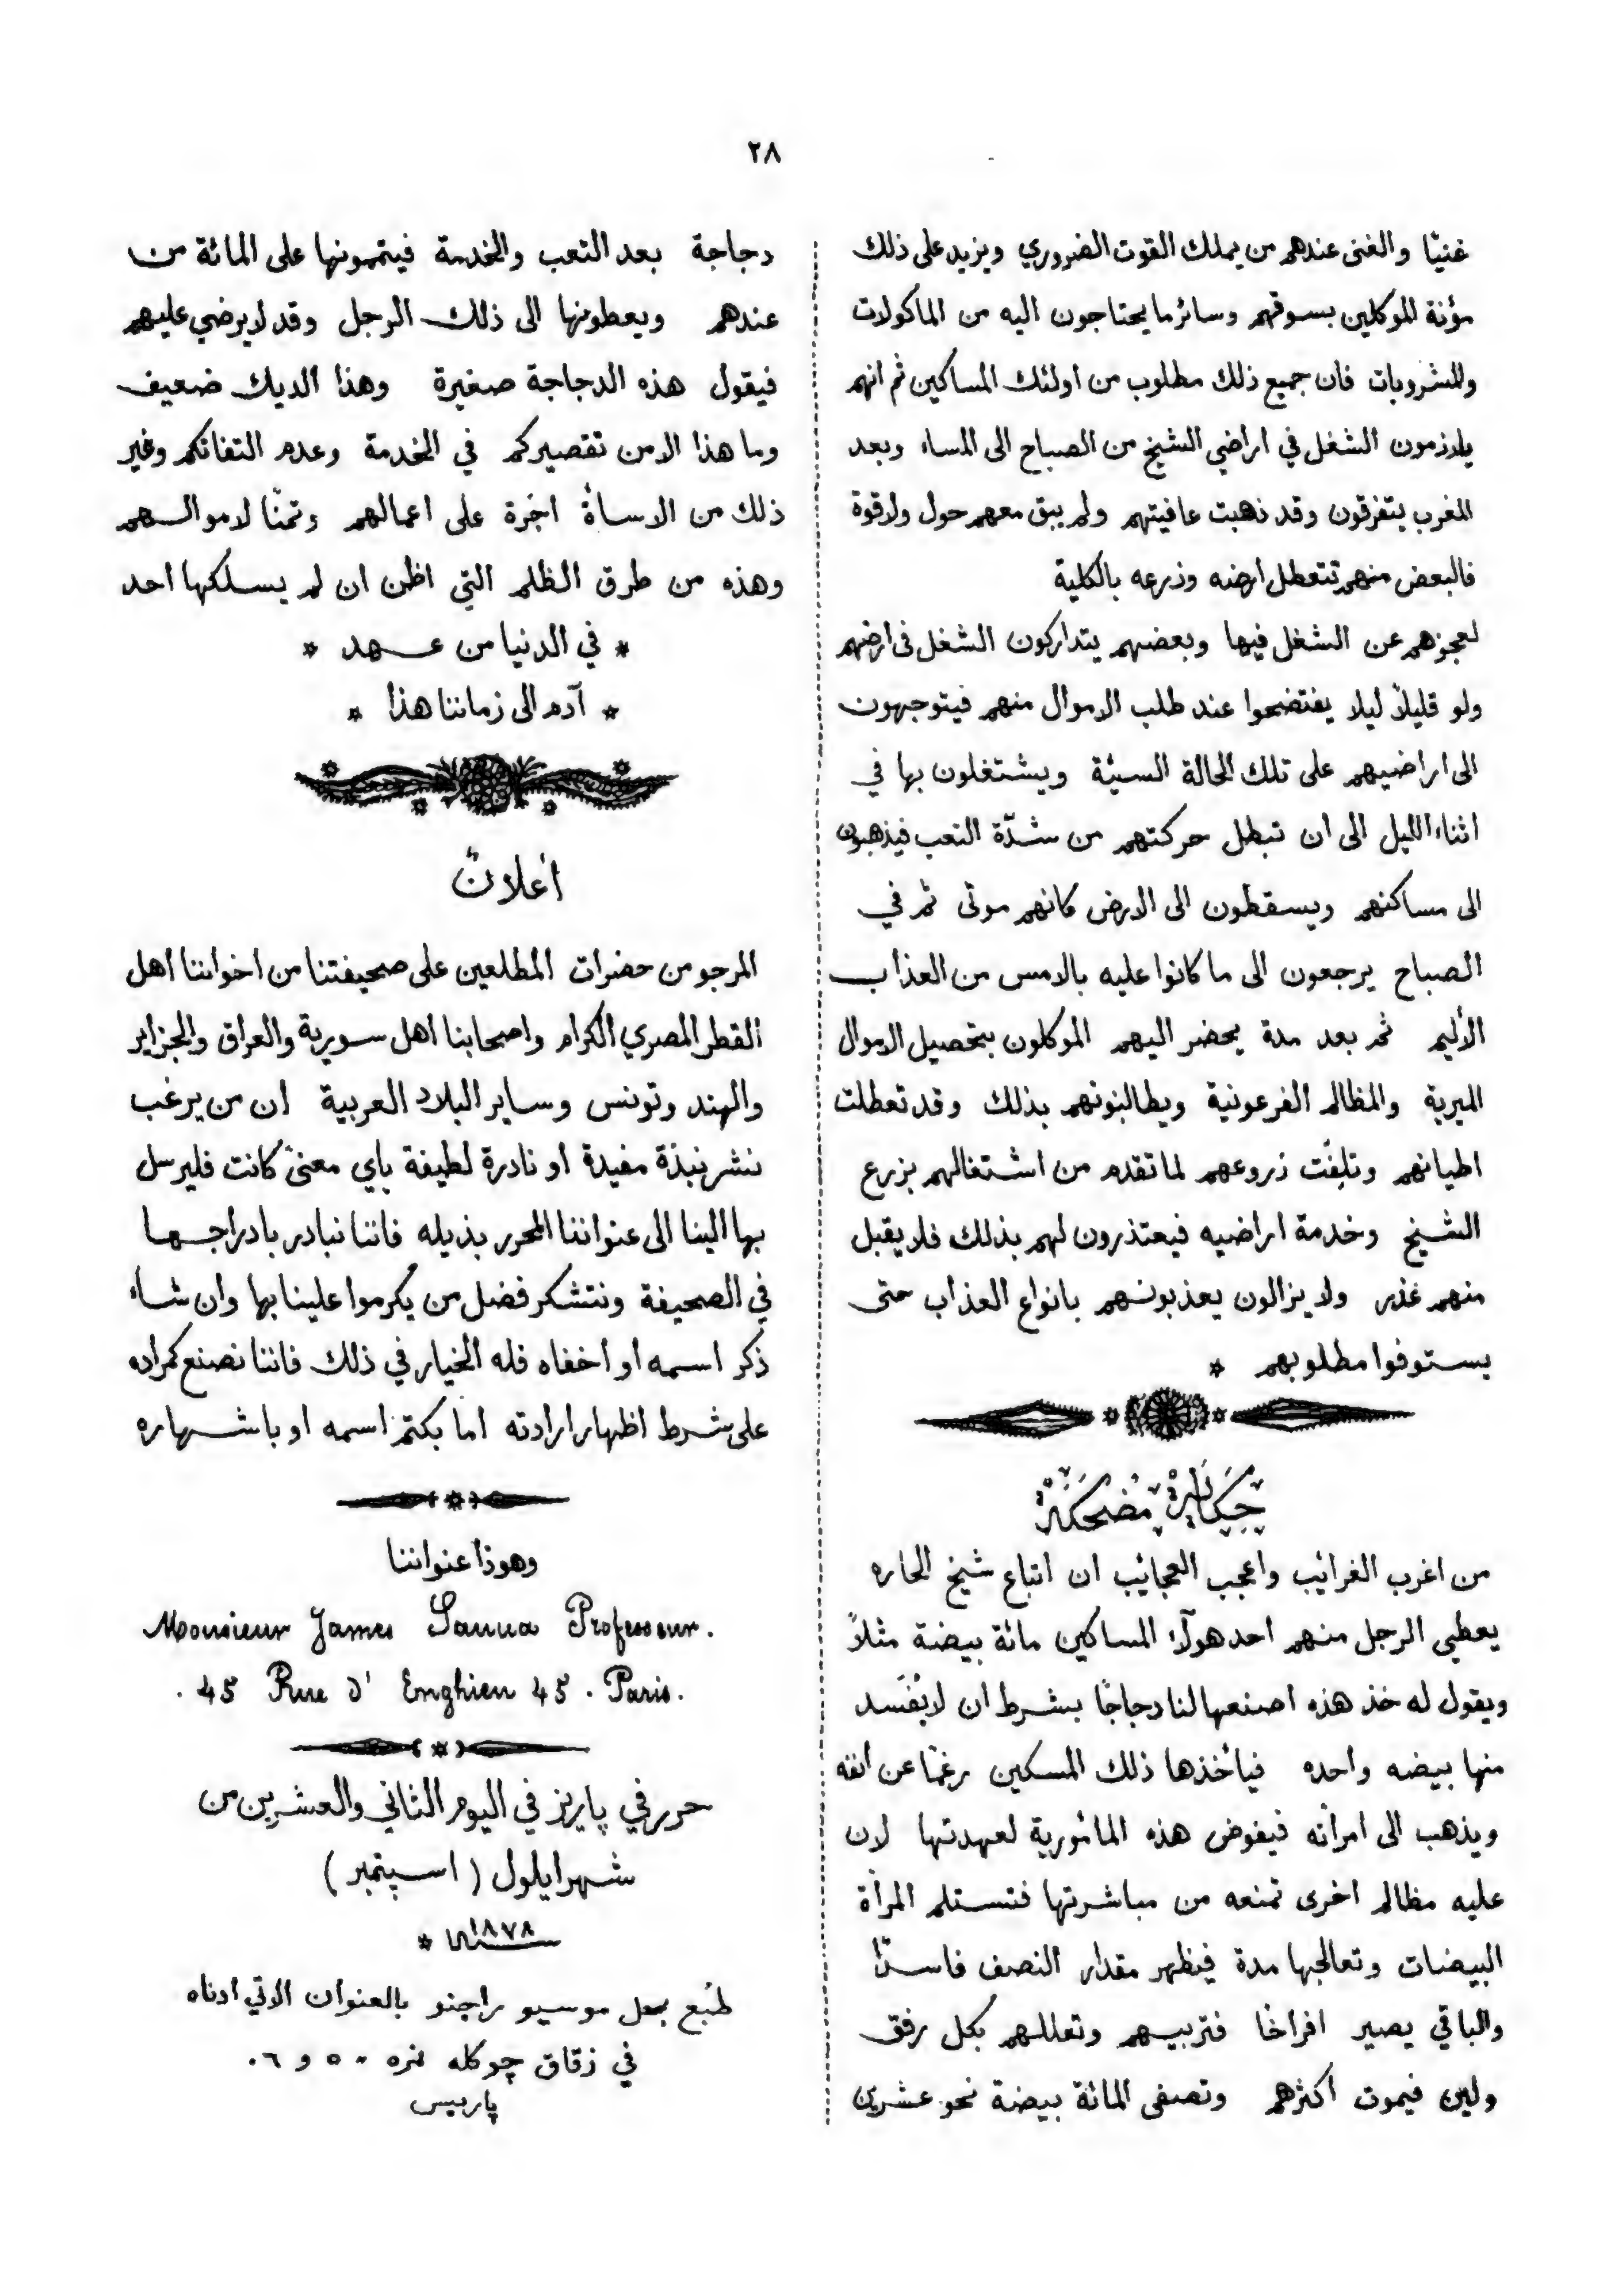 ٢٨
غنيّا والغنى عندهم من يملك القوت الضروري ويزيد على ذلك
مؤنة الموكلين بسوقهم وسائر ما يحتاجون اليه من الماكولات
والمشروبات فان جميع ذلك مطلوب من اولئك المساكين ثم انهم
يلازمون الشغل في اراضي الشيخ من الصباح الى المساء وبعد
المغرب يتفرقون وقد ذهبت عافيتهم ولم يبق معهم حول ولا قوة
فالبعض منهم تتعطل ارضه وزرعه بالكلية
لعجزهم عن الشغل فيها وبعضهم يتداركون الشغل فى ارضهم
ولو قليلاً ليلا يفتضحوا عند طلب الاموال منهم فيتوجهون
الى اراضيهم على تلك الحالة السيئة ويشتغلون بها في
اثناء الليل الى ان تبطل حركتهم من شدّة التعب فيذهبون
الى مساكنهم ويسقطون الى الارض كانهم موتى ثم في
الصباح يرجعون الى ما كانوا عليه بالامس من العذاب
الأليم ثم بعد مدة يحضر اليهم الموكلون بتحصيل الاموال
الميرية والمظالم الفرعونية ويطالبونهم بذلك وقد تعطلت
اطيانهم وتلفت زروعهم لما تقدم من اشتغالهم بزرع
الشيخ وخدمة اراضيه فيعتذرون لهم بذلك فلا يقبل
منهم عذر ولا يزالون يعذبونهم بانواع العذاب حتى
يستوفوا مطلوبهم *
حِكَايَة مُضحِكَة
من اغرب الغرائب واعجب العجائب ان اتباع شيخ الحاره
يعطي الرجل منهم احد هولآء المساكين مائة بيضة مثلاً
ويقول له خذ هذه اصنعها لنا دجاجًا بشرط ان لا يُفسَد
منها بيضه واحده فيأخذها ذلك المسكين رغمًا عن انفه
ويذهب الى امرأته فيفوض هذه المائورية لعهدتها لان
عليه مظالم اخرى تمنعه من مباشرتها فتستلم المرأة
البيضات وتعالجها مدة فيظهر مقدار النصف فاسدًا
والباقي يصير افراخًا فتربيهم وتعللهم بكل رفق
ولين فيموت اكثرهم وتصفى المائة بيضة نحو عشرين
دجاجة بعد التعب والخدمة فيتممونها على المائة من
عندهم ويعطونها الى ذلك الرجل وقد لا يرضي عليهم
فيقول هذه الدجاجة صغيرة وهذا الديك ضعيف
وما هذا الا من تقصيركم في الخدمة وعدم التفاتكم وغير
ذلك من الاسأة اجرة على اعمالهم وثمنًا لاموالهم
وهذه من طرق الظلم التي اظن ان لم يسلكها احد
* في الدنيا من عهد *
* آدم الى زماننا هذا *
أعلانٌ
المرجو من حضرات المطلعين على صحيفتنا من اخواننا اهل
القطر المصري الكرام واصحابنا اهل سورية والعراق والجزاير
والهند وتونس وساير البلاد العربية ان من يرغب
نشر نبذة مفيدة او نادرة لطيفة باي معنىً كانت فليرسل
بها الينا الى عنواننا المحرر بذيله فاننا نبادر بادراجها
في الصحيفة ونتشكر فضل من يكرموا علينا بها وان شاء
ذكر اسمه أو أخفاه فله الخيار في ذلك فاننا نصنع كمراده
على شرط اظهار ارادته اما بكتم اسمه او باشهاره
وهوذا عنواننا
Monsieur James Sanua Professeur.
. 45 Rue d' Enghien 45 . Paris.
حرر في پاريز في اليوم الثاني والعشرين من
شهر ايلول ( اسپتمبر )
سنة ١٨٧٨ *
طبع بمحل موسيو راجنو بالعنوان الاتي ادناه
في زقاق چوكله نمره ٥٠ و ٦٠
پاريس